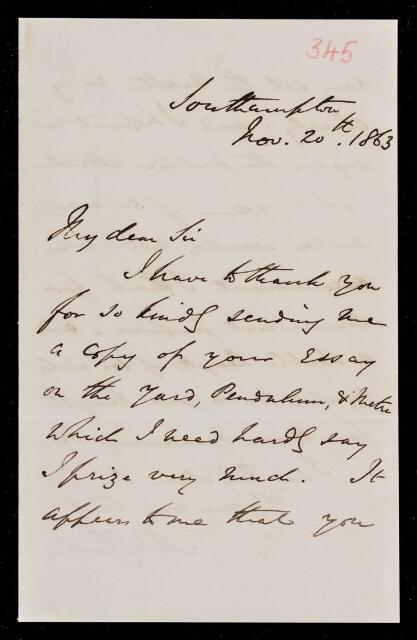 345
Southampton
Nov. 20th. 1863
My dear Sir
I have to thank you
for so kindly sending me
a copy of your Essay
on the Yard, Pendulum, & Metre
which I need hardly say
I prize very much. It
appears to me that you